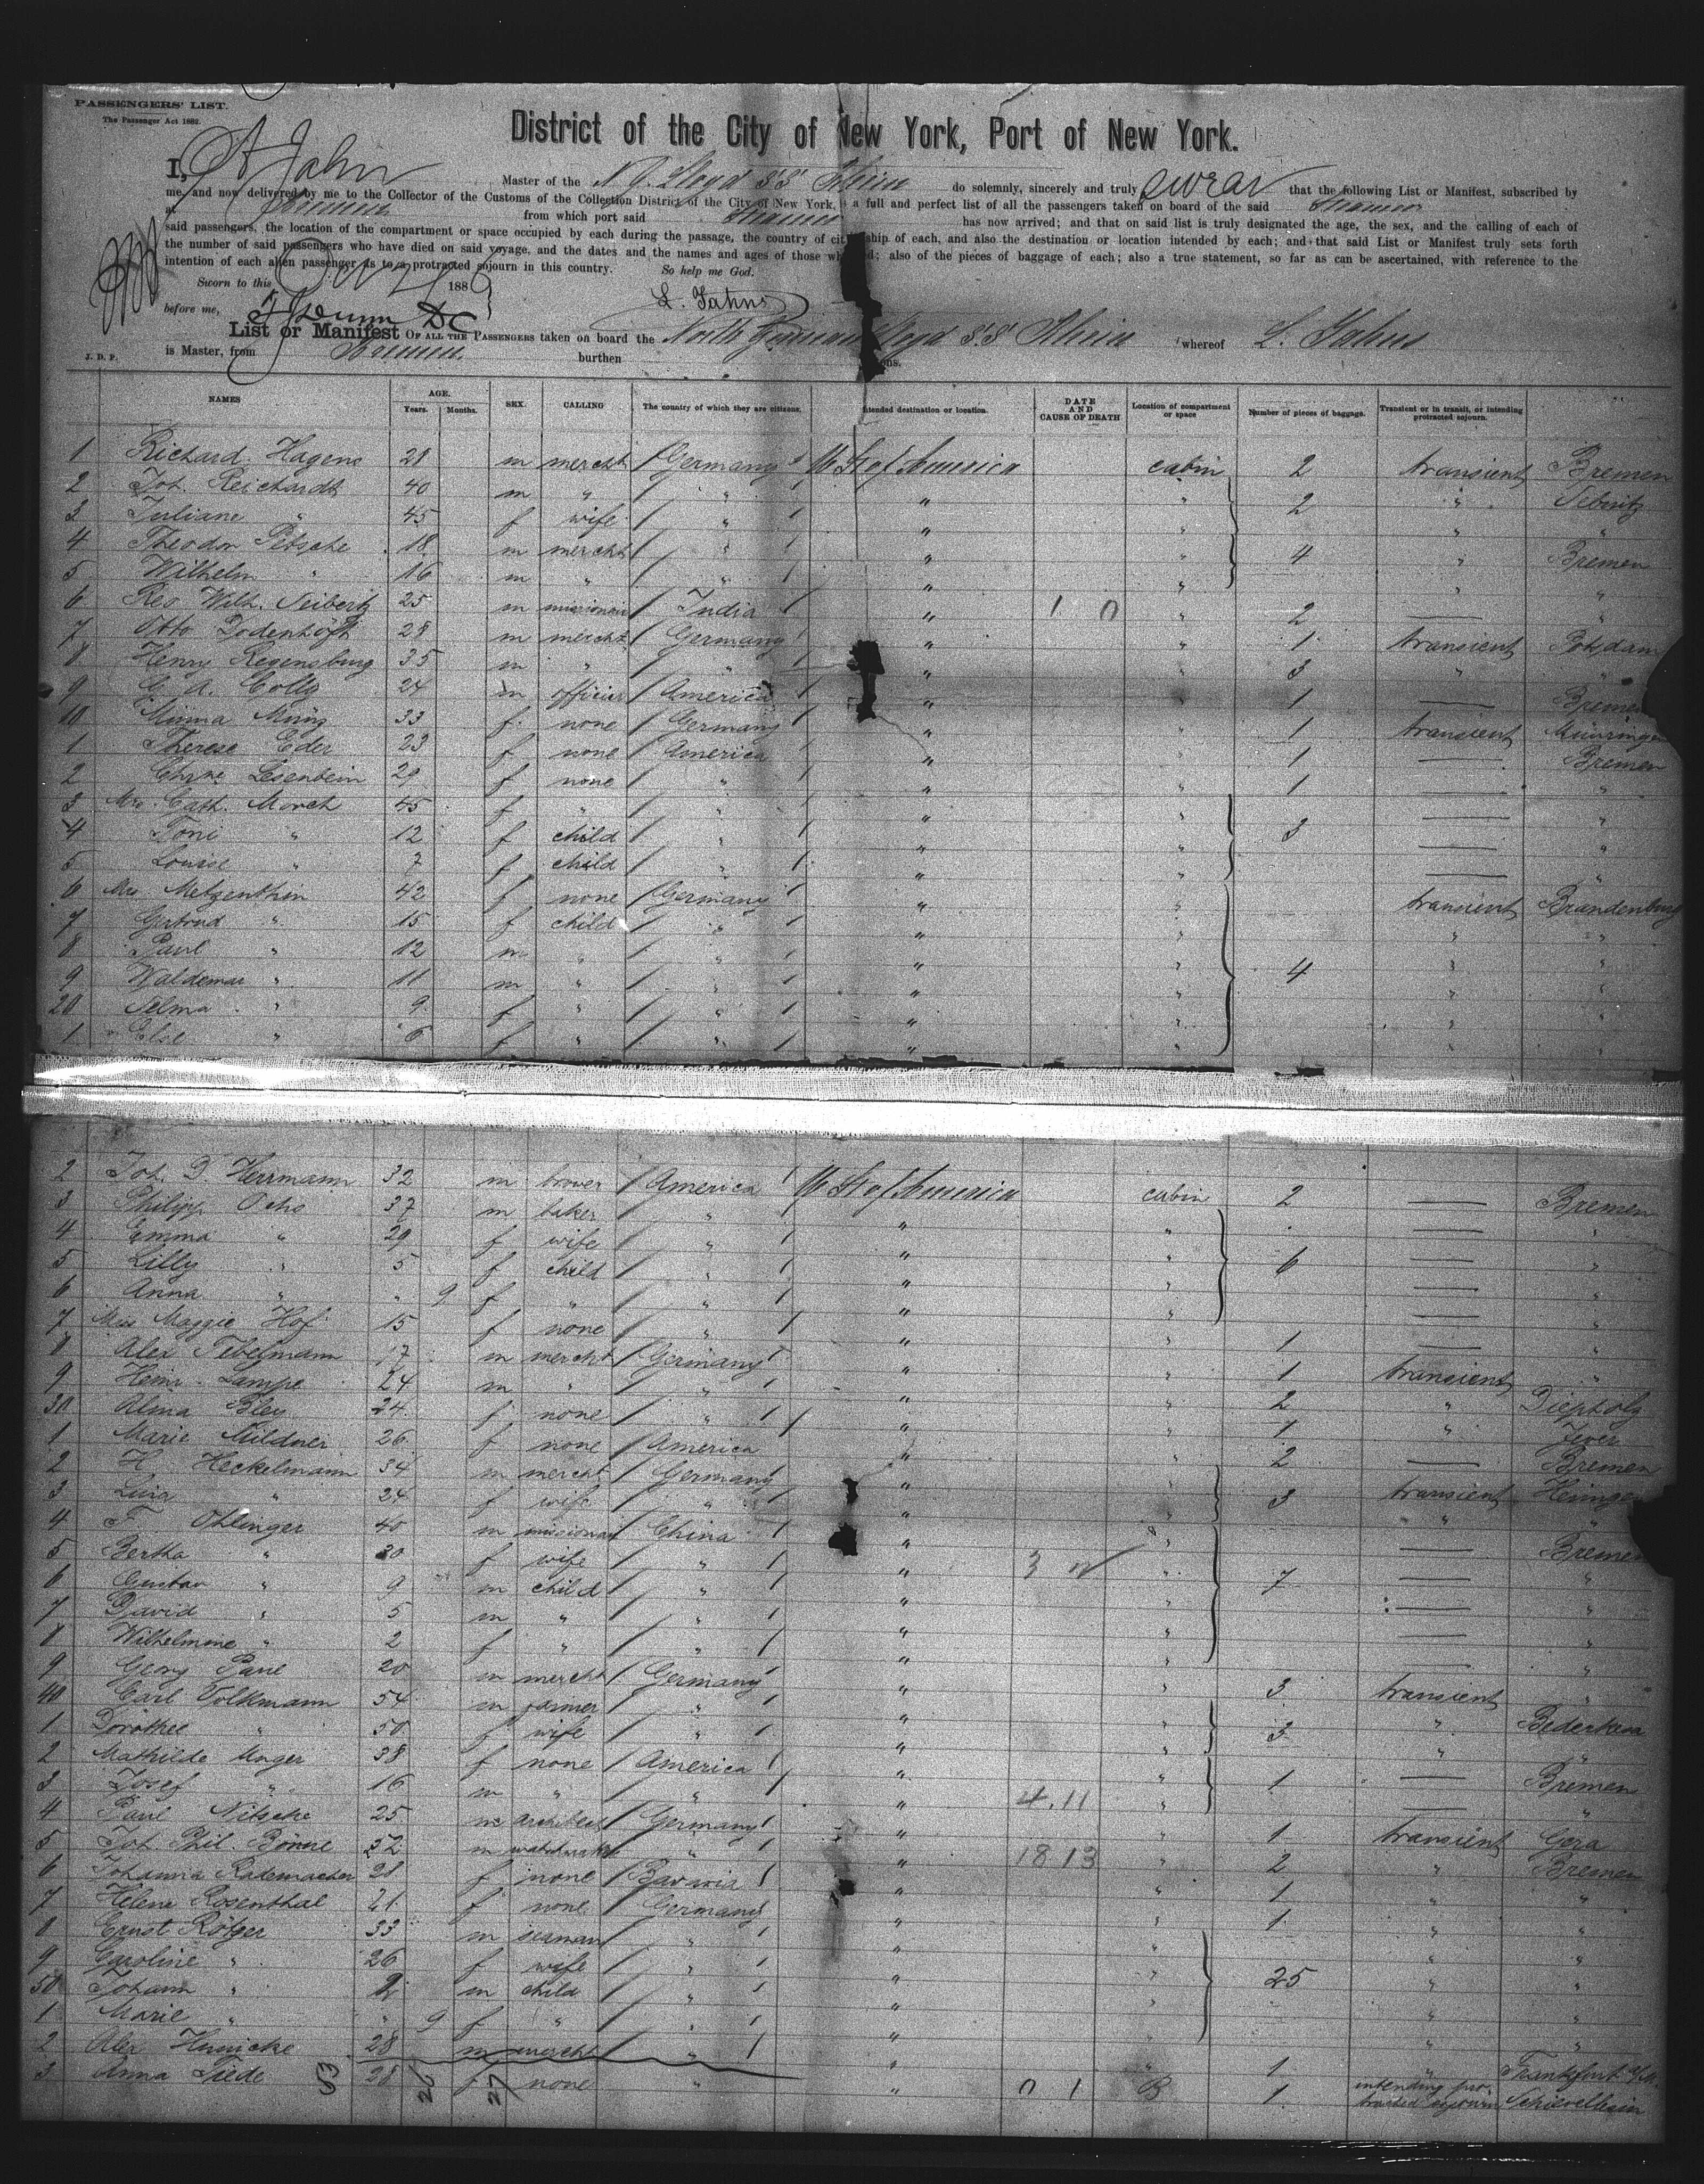 PASSENGERS' LIST.
The Passenger Act 1882.
District of the City of New York, Port of New York.
I, Master of the N. G. Lloyd SS Rhein do solemnly, sincerely and truly swear that the following List or Manifest, subscribed by
me, and now delivered by me to the Collector of the Customs of the Collection District of the City of New York, is a full and perfect list of all the passengers taken on board of the said Steamer
at Bremen from which port said Steamer has now arrived; and that on said list is truly designated the age, the sex, and the calling of each of
said passengers, the location of the compartment or space occupied by each during the passage, the country of citizenship of each, and also the destination or location intended by each; and that said List or Manifest truly sets forth
the number of said passengers who have died on said voyage, and the dates and the names and ages of those who died; also of the pieces of baggage of each; also a true statement, so far as can be ascertained, with reference to the
intention of each alien passenger as to a protracted sojourn in this country. So help me God.
Sworn to this 1886
before me, L. Jahns
List or Manifest OF ALL THE PASSENGERS taken on board the North German Lloyd SS Rhein whereof L. Jahns
J. D. P. is Master, from Bremen burthen tons.
NAMES AGE. Years. Months. SEX. CALLING The country of which they are citizens. Intended destination or location. DATE AND CAUSE OF DEATH Location of compartment or space Number of pieces of baggage. Transient or in transit, or intending protracted sojourn.
1 Richard Hagens 21 m mercht Germany U St of America cabin 2 transient Bremen
2 Joh. Reichardt 40 m " " " " 2 " Sebnitz
3 Juliane " 45 f wife " " " " "
4 Theodor Petsche 18 m mercht " " " 4 " Bremen
5 Wilhelm " 16 m " " " " " "
6 Rev Wilh. Seibert 25 m missionar India " 1 0 " 2 — "
7 Otto Dodenhöft 28 m mercht Germany " " 1 transient Potsdam
8 Henry Regensburg 35 m " " " " 3 " "
9 C. A. 24 m officier America " " 1 — Bremen
10 Minna 33 f none Germany " " 1 transient
1 Therese Eder 23 f none America " " 1 — Bremen
2 Chrne Eisenbein 29 f none " " " 1 — "
3 Mrs. Cath. Morch 45 f " " " " 3 — "
4 Toni " 12 f child " " " — "
5 Louise " 7 f child " " " — "
6 Mrs Metzenthin 42 f none Germany " " transient Brandenburg
7 Gertrud " 15 f child " " " " "
8 Paul " 12 m " " " " 4 " "
9 Waldemar " 11 m " " " " " "
20 Selma " 9 f " " " " " "
1 Else " 6 f " " " " " "
2 Joh. D Herrmann 32 m brover America U St of America cabin 2 — Bremen
3 Philipp Ochs 37 m baker " " " — "
4 Emma " 29 f wife " " " 6 — "
5 Lilly " 5 f child " " " — "
6 Anna " " 9 f " " " " — "
7 Miss Maggie Hof 15 f none " " " 1 — "
8 Alex Tebelmann 17 m mercht Germany " " 1 transient "
9 Heinr. Lampe 24 m " " " " 2 " Diepholz
30 Alma Bley 24 f none " " " 1 " Jever
1 Marie Mildner 26 f none America " " 2 — Bremen
2 H Heckelmann 34 m mercht Germany " " 3 transient
3 " 24 f wife " " " " "
4 F Ohlinger 40 m missionar China " " — Bremen
5 Bertha " 30 f wife " " 3 " 7 — "
6 Gustav " 9 m child " " " — "
7 David " 5 m " " " " — "
8 Wilhelmine " 2 f " " " " — "
9 Georg 20 m mercht Germany " " 3 transient "
40 Carl Volkmann 54 m farmer " " " 3 " Bederkesa
1 Dorothee " 50 f wife " " " " "
2 Mathilde Unger 38 f none America " " 1 — Bremen
3 Josef " 16 m " " " 4.11 " — "
4 Paul Nitsche 25 m architect Germany " " 1 transient Gera
5 Joh. Phil. 52 m " " 18 13 " 2 " Bremen
6 Johanna Rademacher 28 f none Bavaria " " 1 " "
7 Helene Rosenthal 21 f none Germany " " 1 " "
8 Ernst Rötger 33 m seaman " " " " "
9 Caroline " 26 f wife " " " 25 " "
50 Johann " 2 m child " " " " "
1 Marie " " 9 f " " " " " "
2 Alex Hunicke 28 m mercht " " " 1 " Frankfurt a/M.
3 Anna Tiede 28 f none " " 0 1 B 1 intending protracted sojourn Schievelbein
53 26 27